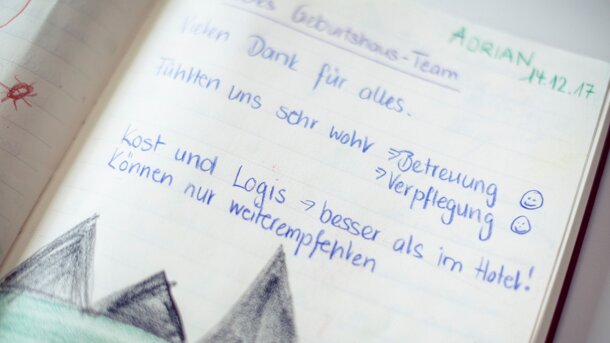 Geburtshaus-Team
ADRIAN
14.12.17
Vielen Dank für alles.
Fühlten uns sehr wohl → Betreuung ☺
→ Verpflegung ☺
Kost und Logis → besser als im Hotel!
Können nur weiterempfehlen